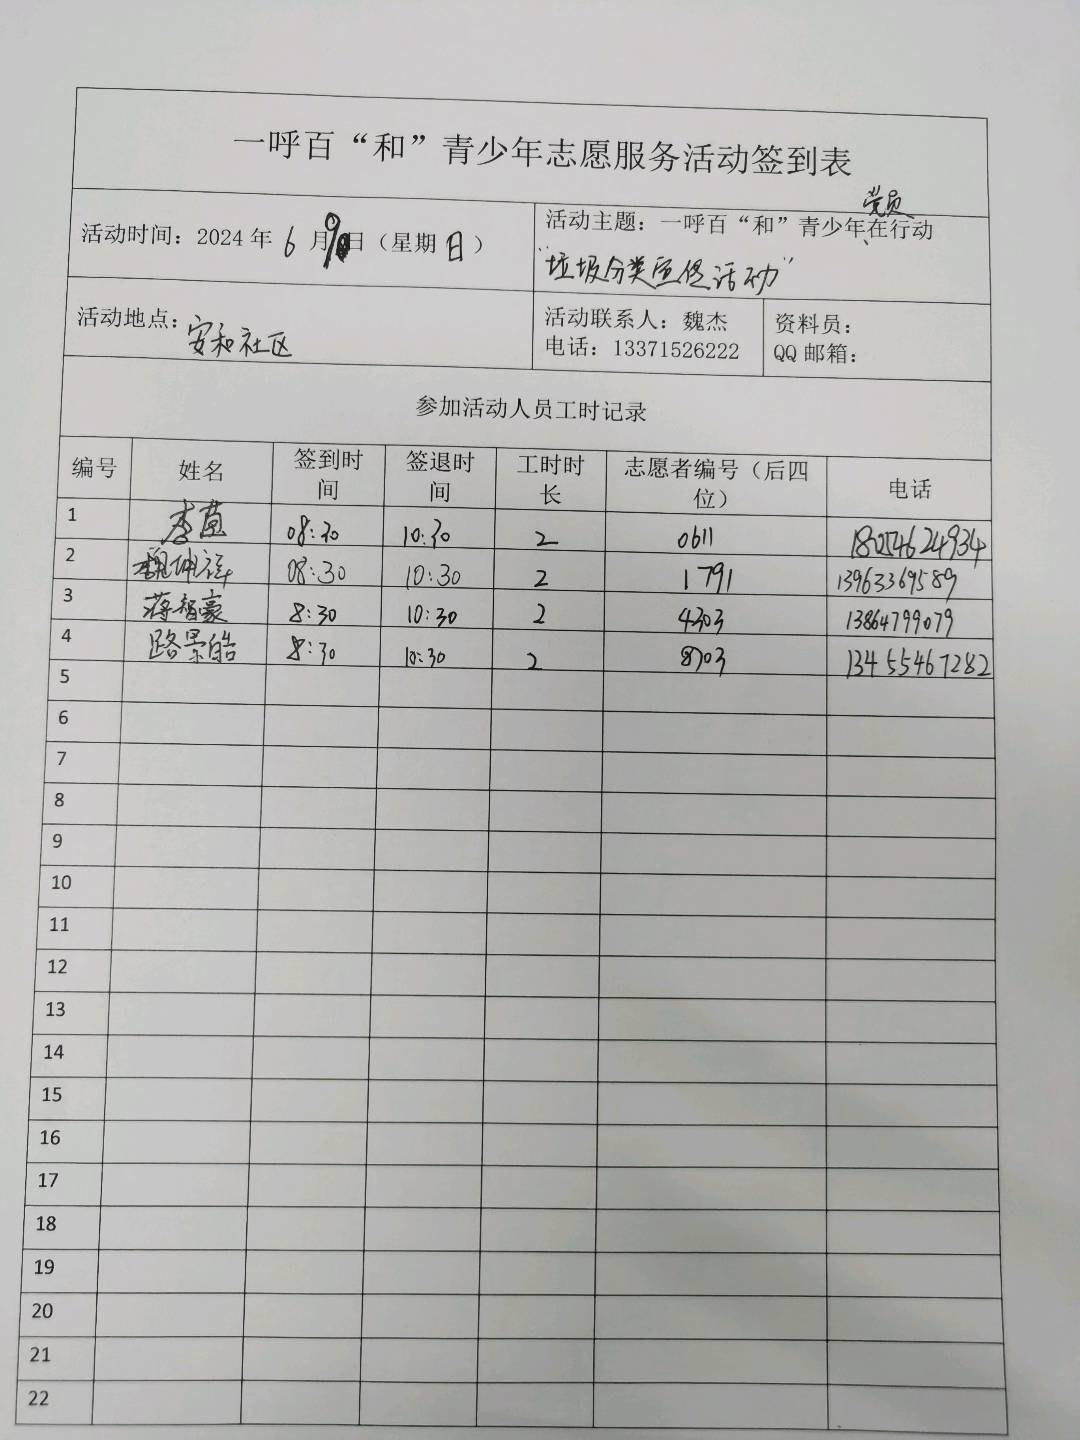 一呼百“和”青少年志愿服务活动签到表
活动时间：2024年6月9日（星期日）
党员
活动主题：一呼百“和”青少年在行动
“垃圾分类宣传活动”
活动地点：安和社区
活动联系人：魏杰
电话：13371526222
资料员：
QQ邮箱：
参加活动人员工时记录
编号 姓名 签到时间 签退时间 工时时长 志愿者编号（后四位） 电话
1 李 08:30 10:30 2 0611 18054624934
2 魏坤祥 08:30 10:30 2 1791 13963369589
3 蒋智豪 8:30 10:30 2 4303 13864799079
4 路景皓 8:30 10:30 2 8703 13455467282
5
6
7
8
9
10
11
12
13
14
15
16
17
18
19
20
21
22